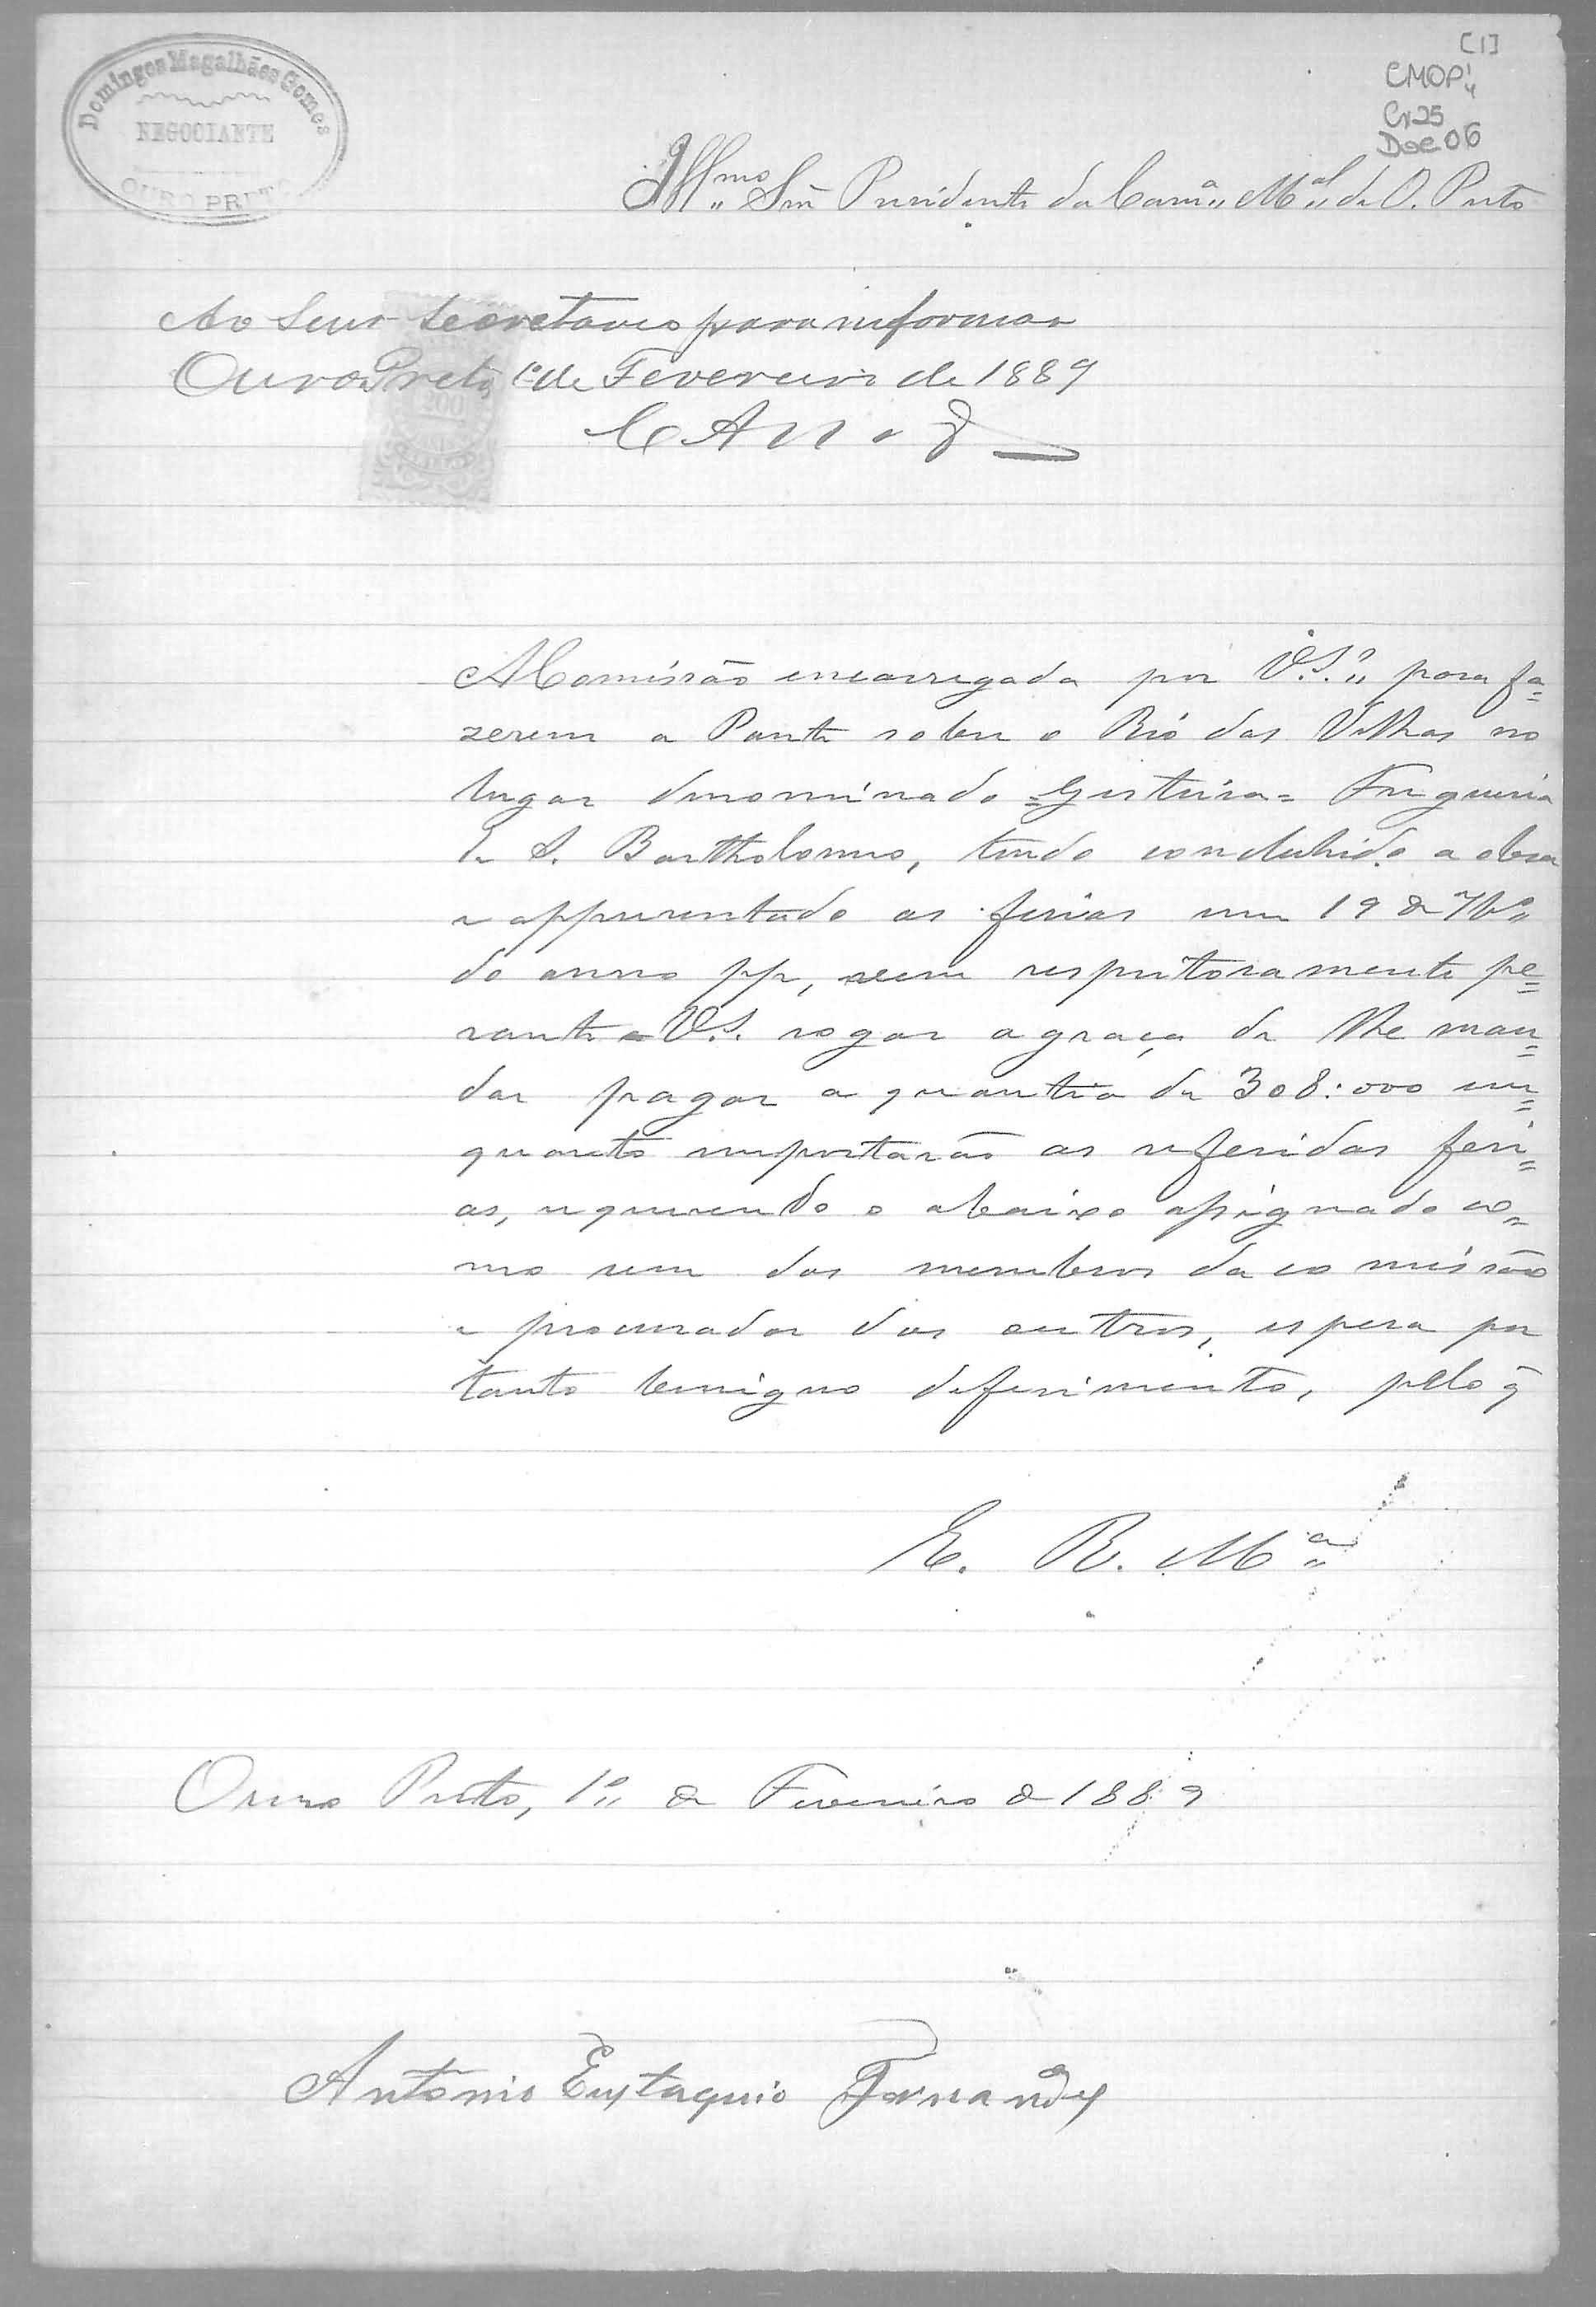 [1]
CMOP
Cx25
Doc 06
Domingos Magalhães Gomes
NEGOCIANTE
OURO PRETO
Illmo Snr Presidente da Camª Mªl de O. Preto
Ao Senr Secretario para informar
Ouro Preto, 1º de Fevereiro de 1889
200
A Comissão encarregada por V.S.ª para fa=
zerem a Ponte sobre o Rio das Velhas no
lugar denominado = = Freguesia
de S. Bartholomeo, tendo concluhido a obra
e appresentado as ferias em 19 de 7bro
do anno pp, vem respeitosamente pe=
rante V.S. rogar a graça de lhe man=
dar pagar a quantia de 308:000 em=
quanto importarão as referidas feri=
as, requerendo o abaixo assignado co=
mo um dos membros da comissão
e procurador dos outros, espera por
tanto benigno deferimento, pelo q̃
E. R. Mª
Ouro Preto, 1º de Fevereiro de 1889
Antonio Eustaquio Fernandes